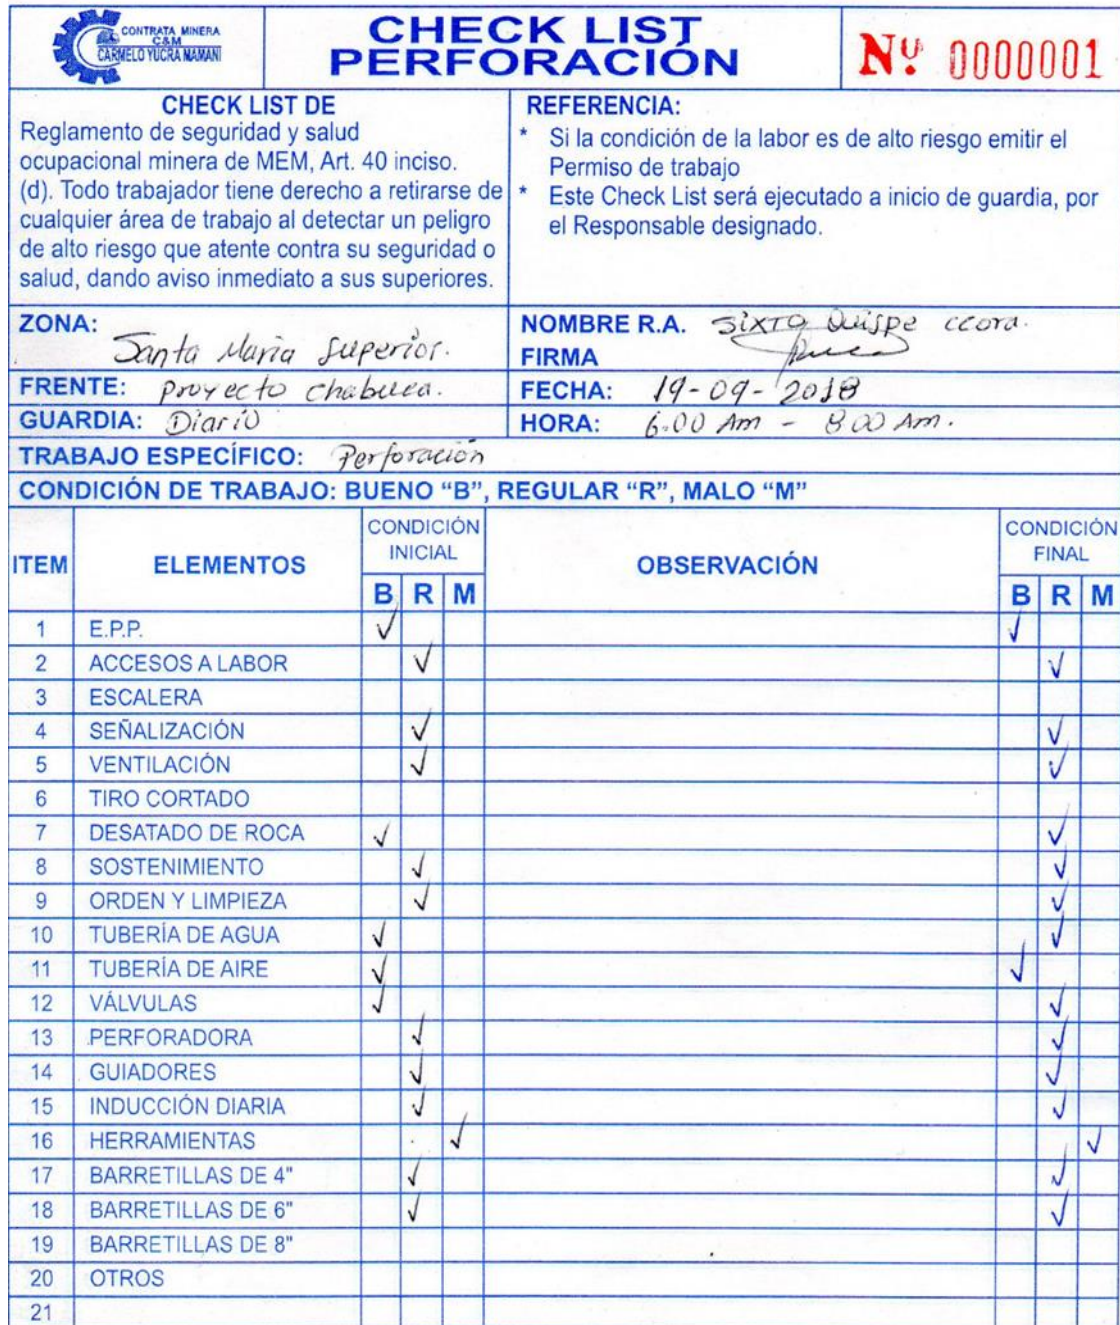 CONTRATA MINERA
C&M
CARMELO YUCRA MAMANI
CHECK LIST
PERFORACIÓN
Nº 0000001
CHECK LIST DE
Reglamento de seguridad y salud
ocupacional minera de MEM, Art. 40 inciso.
(d). Todo trabajador tiene derecho a retirarse de
cualquier área de trabajo al detectar un peligro
de alto riesgo que atente contra su seguridad o
salud, dando aviso inmediato a sus superiores.
REFERENCIA:
* Si la condición de la labor es de alto riesgo emitir el
Permiso de trabajo
* Este Check List será ejecutado a inicio de guardia, por
el Responsable designado.
ZONA: Santa Maria Superior.
NOMBRE R.A. SIXTO Quispe ccora.
FIRMA
FRENTE: Proyecto chabuca.
FECHA: 19-09-2018
GUARDIA: Diario
HORA: 6.00 Am - 8 00 Am.
TRABAJO ESPECÍFICO: Perforación
CONDICIÓN DE TRABAJO: BUENO “B”, REGULAR “R”, MALO “M”
ITEM ELEMENTOS CONDICIÓN INICIAL OBSERVACIÓN CONDICIÓN FINAL
B R M B R M
1 E.P.P. ✓ ✓
2 ACCESOS A LABOR ✓ ✓
3 ESCALERA
4 SEÑALIZACIÓN ✓ ✓
5 VENTILACIÓN ✓ ✓
6 TIRO CORTADO
7 DESATADO DE ROCA ✓ ✓
8 SOSTENIMIENTO ✓ ✓
9 ORDEN Y LIMPIEZA ✓ ✓
10 TUBERÍA DE AGUA ✓ ✓
11 TUBERÍA DE AIRE ✓ ✓
12 VÁLVULAS ✓ ✓
13 PERFORADORA ✓ ✓
14 GUIADORES ✓ ✓
15 INDUCCIÓN DIARIA ✓ ✓
16 HERRAMIENTAS ✓ ✓
17 BARRETILLAS DE 4" ✓ ✓
18 BARRETILLAS DE 6" ✓ ✓
19 BARRETILLAS DE 8"
20 OTROS
21